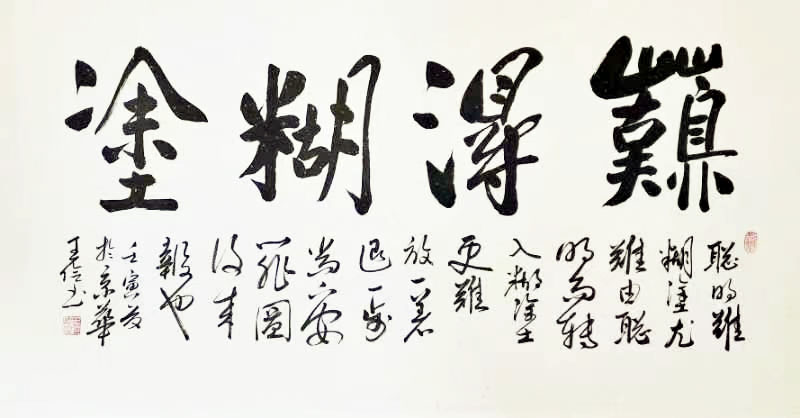 難得糊塗
聪明難
糊塗尤
難由聪
明而轉
入糊塗
更難
放一著
退一步
當安
非圖
後来
報也
壬寅
於京華
书